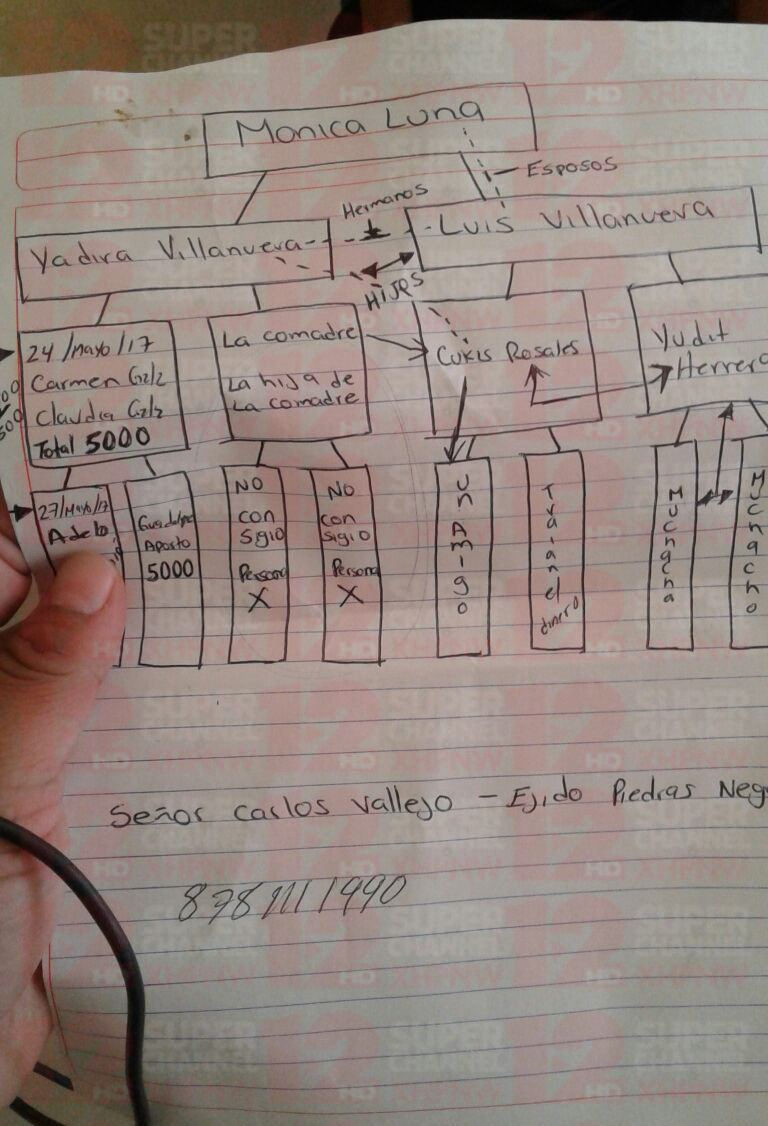 Monica Luna
Esposos
Hermanos
Yadira Villanuera
Luis Villanuera
Hijos
24/Mayo/17
Carmen Gzlz
Claudia Gzlz
Total 5000
La comadre
La hija de
La comadre
Cukis Rosales
Yudit
Herrera
27/Mayo/17
Guadalupe
Aposto
5000
NO
con
sigio
Persona
X
NO
con
sigio
Persona
X
Un Amigo
Traian el
dinero
Muchacha
Muchacho
Señor Carlos Vallejo - Ejido Piedras Neg
878 111 1990
SUPER
CHANNEL
12
HD XHPNW